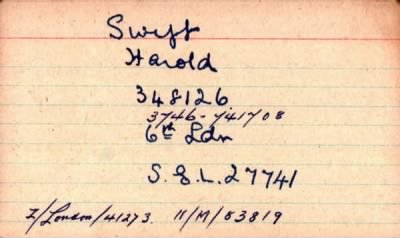 Swift
Harold
348126
3746-741708
6th Ldn
S.&L.27741
I/London/41273. 11/M/53819